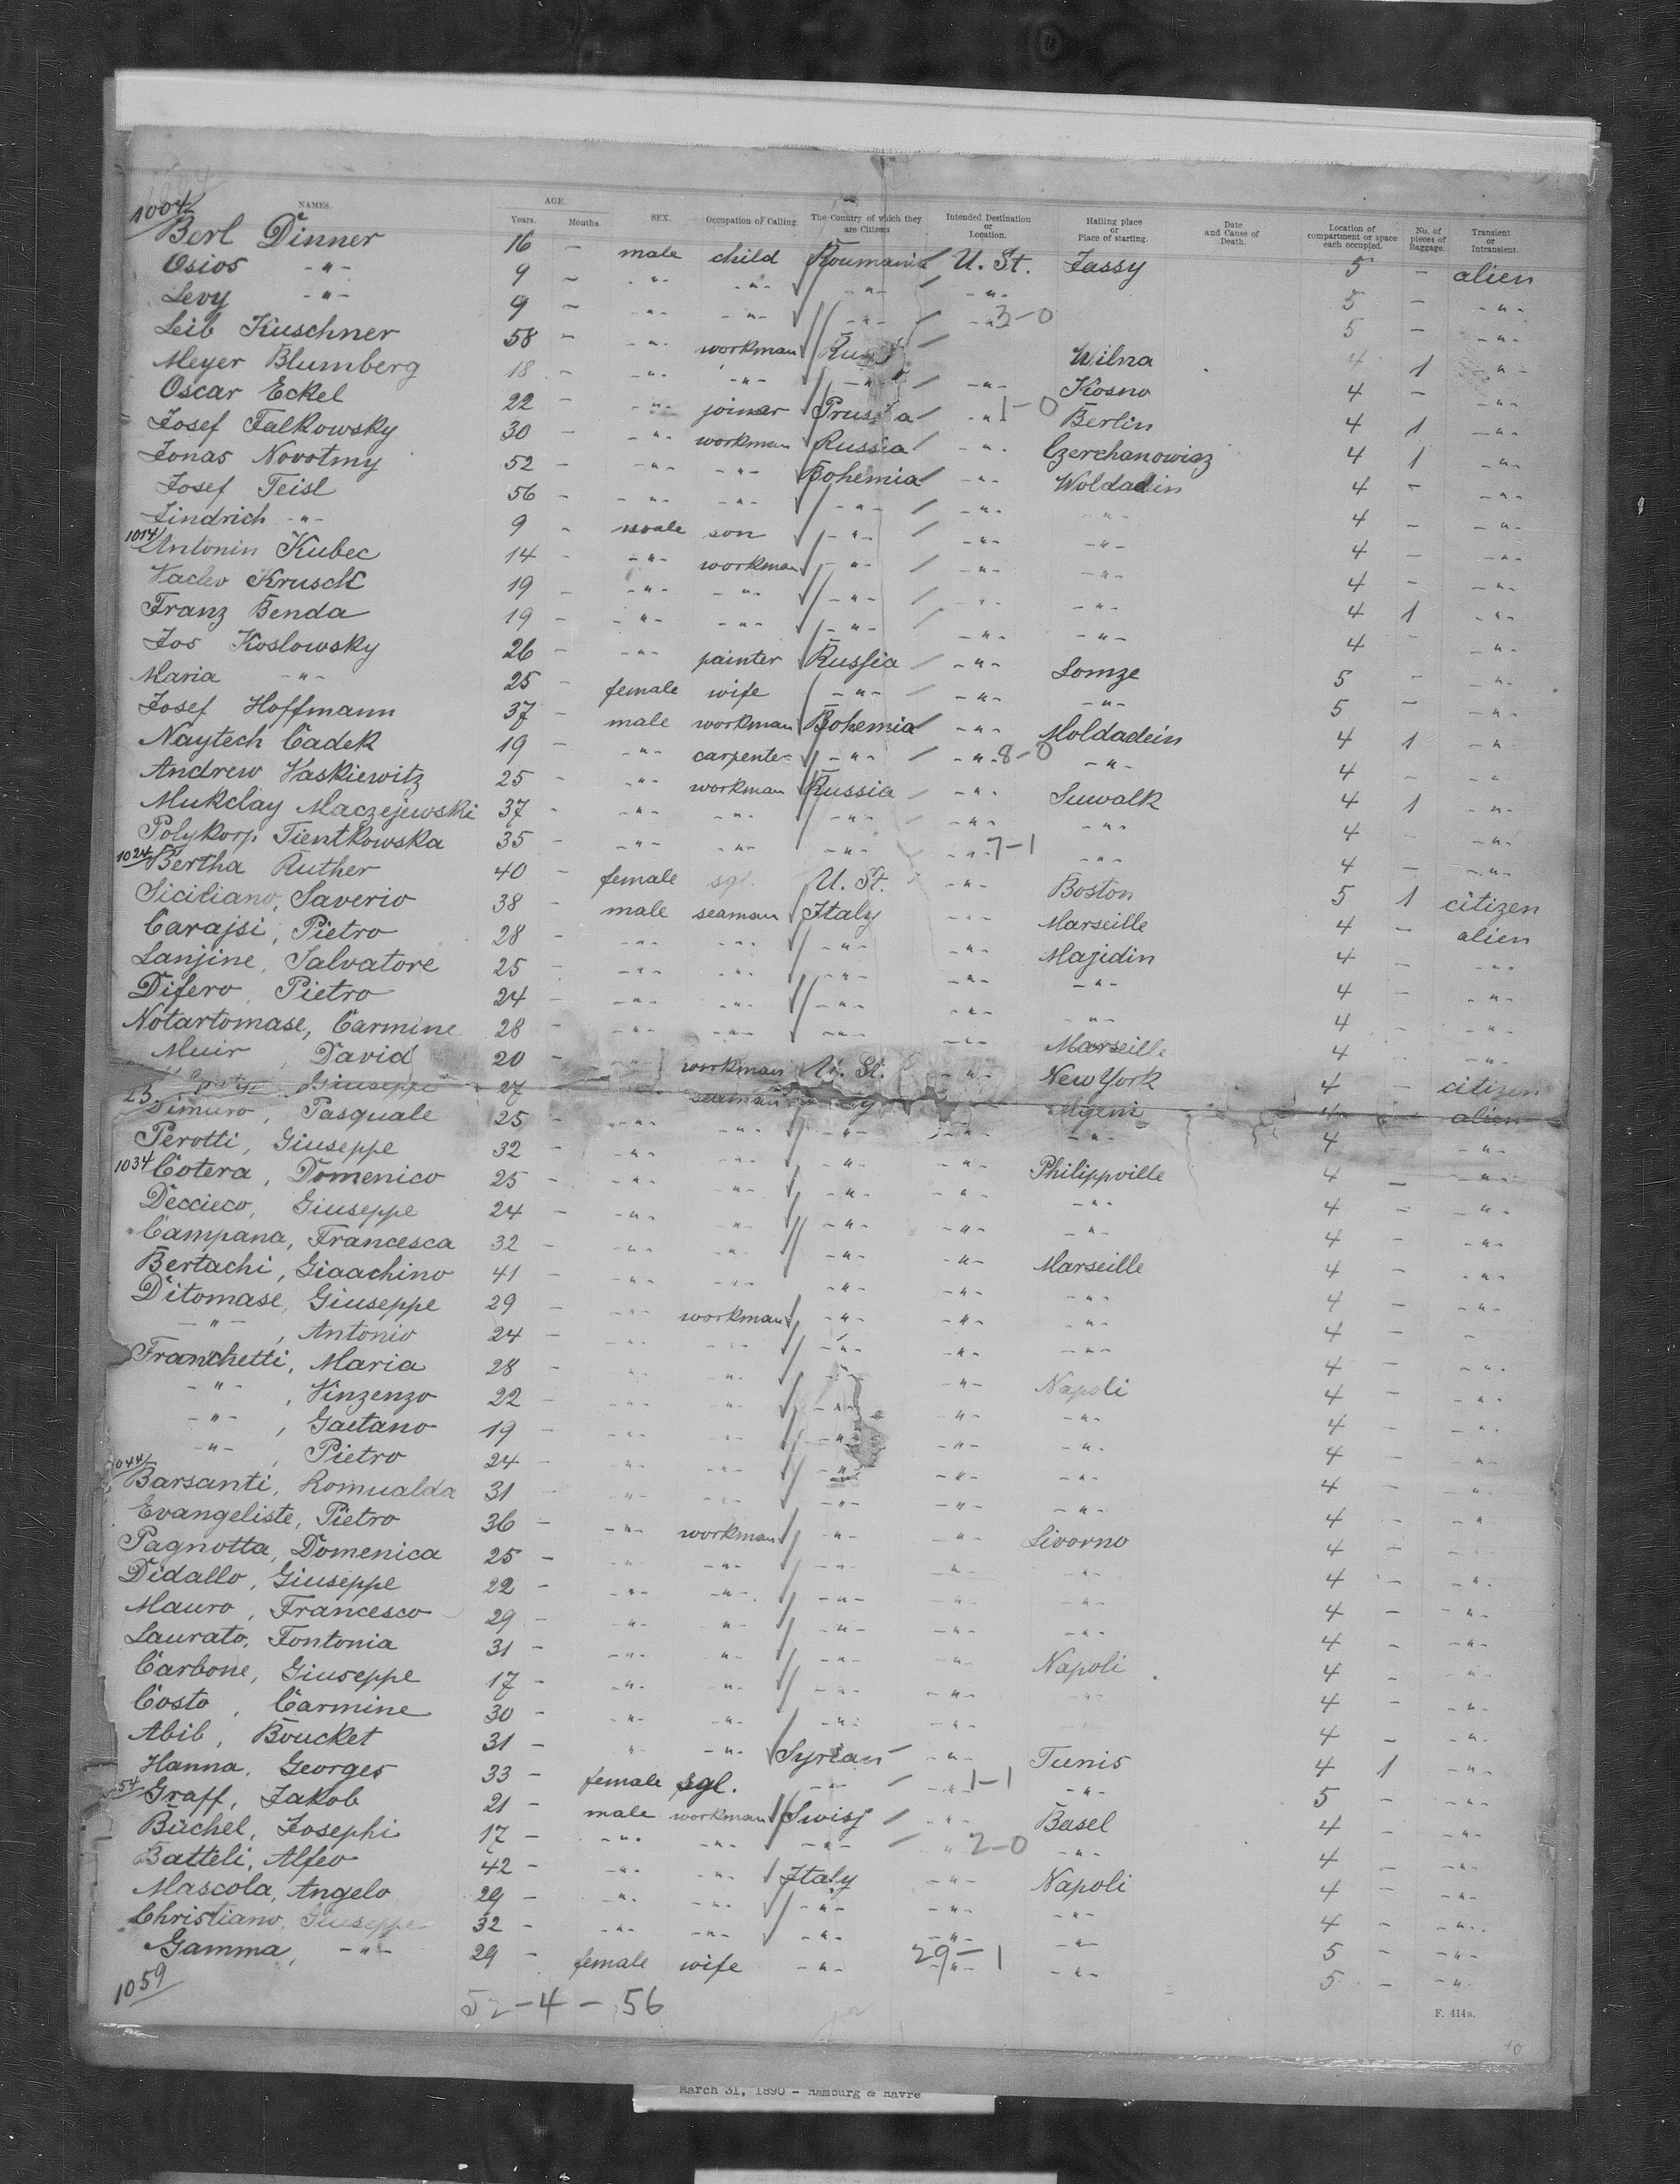 1004
NAMES. AGE. Years. Months. SEX. Occupation or Calling. The Country of which they are Citizens Intended Destination or Location. Hailing place or Place of starting. Date and Cause of Death. Location of compartment or space each occupied. No. of pieces of Baggage. Transient or Intransient.
Berl Dinner 16 - male child Roumania U. St. Jassy 5 - alien
Osios -"- 9 - -"- -"- -"- -"- 5 - -"-
Levy -"- 9 - -"- -"- -"- -"- 3-0 5 - -"-
Leib Kuschner 58 - -"- workman Wilna 4 1 -"-
Meyer Blumberg 18 - -"- -"- -"- -"- Kosno 4 - -"-
Oscar Eckel 22 - -"- joiner Prussia -"- 1-0 Berlin 4 1 -"-
Josef Falkowsky 30 - -"- workman Russia -"- Czerchanowisz 4 1 -"-
Jonas Novotmy 52 - -"- -"- Bohemia -"- Woldadin 4 - -"-
Josef Teisl 56 - -"- -"- -"- -"- -"- 4 - -"-
Jindrich -"- 9 - male son -"- -"- -"- 4 - -"-
1014 Antonin Kubec 14 - -"- workman -"- -"- -"- 4 - -"-
Krusch 19 - -"- -"- -"- -"- -"- 4 1 -"-
Franz Benda 19 - -"- -"- -"- -"- -"- 4 - -"-
Jos Koslowsky 26 - -"- painter Russia -"- Lomze 5 - -"-
Maria -"- 25 - female wife -"- -"- -"- 5 - -"-
Josef Hoffmann 37 - male workman Bohemia -"- Moldadein 4 1 -"-
Naytech Cadek 19 - -"- carpenter -"- -"- 8-0 -"- 4 - -"-
Andrew Vaskiewitz 25 - -"- workman Russia -"- Suwalk 4 1 -"-
Mukclay Maczejewski 37 - -"- -"- -"- -"- -"- 4 - -"-
Polykorp Tientkowska 35 - -"- -"- -"- -"- 7-1 -"- 4 - -"-
1024 Bertha Ruther 40 - female sgl. U. St. -"- Boston 5 1 citizen
Siciliano, Saverio 38 - male seaman Italy -"- Marseille 4 - alien
Carajsi, Pietro 28 - -"- -"- -"- -"- Majidin 4 - -"-
Lanjine, Salvatore 25 - -"- -"- -"- -"- -"- 4 - -"-
Difero, Pietro 24 - -"- -"- -"- -"- -"- 4 - -"-
Notartomase, Carmine 28 - -"- -"- -"- -"- Marseille 4 - -"-
Muir, David 20 - -"- workman U. St. -"- New York 4 - citizen
Giuseppe 27 seaman 4 alien
Dimuro, Pasquale 25 - -"- -"- -"- -"- -"- 4 - -"-
Perotti, Giuseppe 32 - -"- -"- -"- -"- Philippville 4 - -"-
1034 Cotera, Domenico 25 - -"- -"- -"- -"- -"- 4 - -"-
Deccieco, Giuseppe 24 - -"- -"- -"- -"- -"- 4 - -"-
Campana, Francesca 32 - -"- -"- -"- -"- Marseille 4 - -"-
Bertachi, Giaachino 41 - -"- -"- -"- -"- -"- 4 - -"-
Ditomase, Giuseppe 29 - -"- workman -"- -"- -"- 4 - -
-"-, Antonio 24 - -"- -"- -"- -"- -"- 4 - -"-
Franchetti, Maria 28 - -"- -"- -"- -"- Napoli 4 - -"-
-"-, Vinzenzo 22 - -"- -"- -"- -"- -"- 4 - -"-
-"-, Gaetano 19 - -"- -"- -"- -"- -"- 4 - -"-
-"-, Pietro 24 - -"- -"- -"- -"- -"- 4 - -"-
1044 Barsanti, Romualda 31 - -"- -"- -"- -"- -"- 4 - -"-
Evangeliste, Pietro 36 - -"- workman -"- -"- Livorno 4 - -"-
Pagnotta, Domenica 25 - -"- -"- -"- -"- -"- 4 - -"-
Didallo, Giuseppe 22 - -"- -"- -"- -"- -"- 4 - -"-
Mauro, Francesco 29 - -"- -"- -"- -"- -"- 4 - -"-
Laurato, Fontonia 31 - -"- -"- -"- -"- Napoli 4 - -"-
Carbone, Giuseppe 17 - -"- -"- -"- -"- -"- 4 - -"-
Costo, Carmine 30 - -"- -"- -"- -"- 4 - -"-
Abib, Boucket 31 - " -"- Syrian -"- Tunis 4 1 -"-
Hanna, Georges 33 - female sgl. -"- -"- 1-1 -"- 5 - -"-
54 Graff, Jakob 21 - male workman Swiss -"- Basel 4 - -"-
Büchel, Josephi 17 - -"- -"- -"- " 2-0 -"- 4 - -"-
Batteli, Alfeo 42 - -"- -"- Italy -"- Napoli 4 - -"-
Mascola, Angelo 29 - -"- -"- -"- -"- -"- 4 - -"-
Christiano, Giuseppe 32 - -"- -"- -"- -"- -"- 5 - -"-
Gamma, -"- 29 - female wife -"- 29-1 -"- -"- 5 - -"-
1059
52-4-56
F. 414a.
March 31, 1890 - Hamburg & Havre